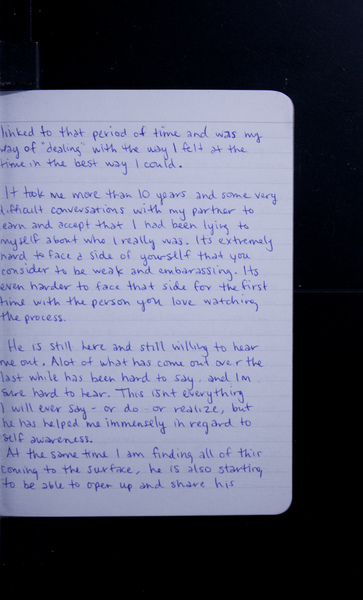 linked to that period of time and was my
way of "dealing" with the way I felt at the
time in the best way I could.
It took me more than 10 years and some very
difficult conversations with my partner to
learn and accept that I had been lying to
myself about who I really was. Its extremely
hard to face a side of yourself that you
consider to be weak and embarassing. Its
even harder to face that side for the first
time with the person you love watching
the process.
He is still here and still willing to hear
me out. Alot of what has come out over the
last while has been hard to say - and Im
sure hard to hear. This isnt everything
I will ever say - or do - or realize, but
he has helped me immensely in regard to
self awareness.
At the same time I am finding all of this
coming to the surface, he is also starting
to be able to open up and share his